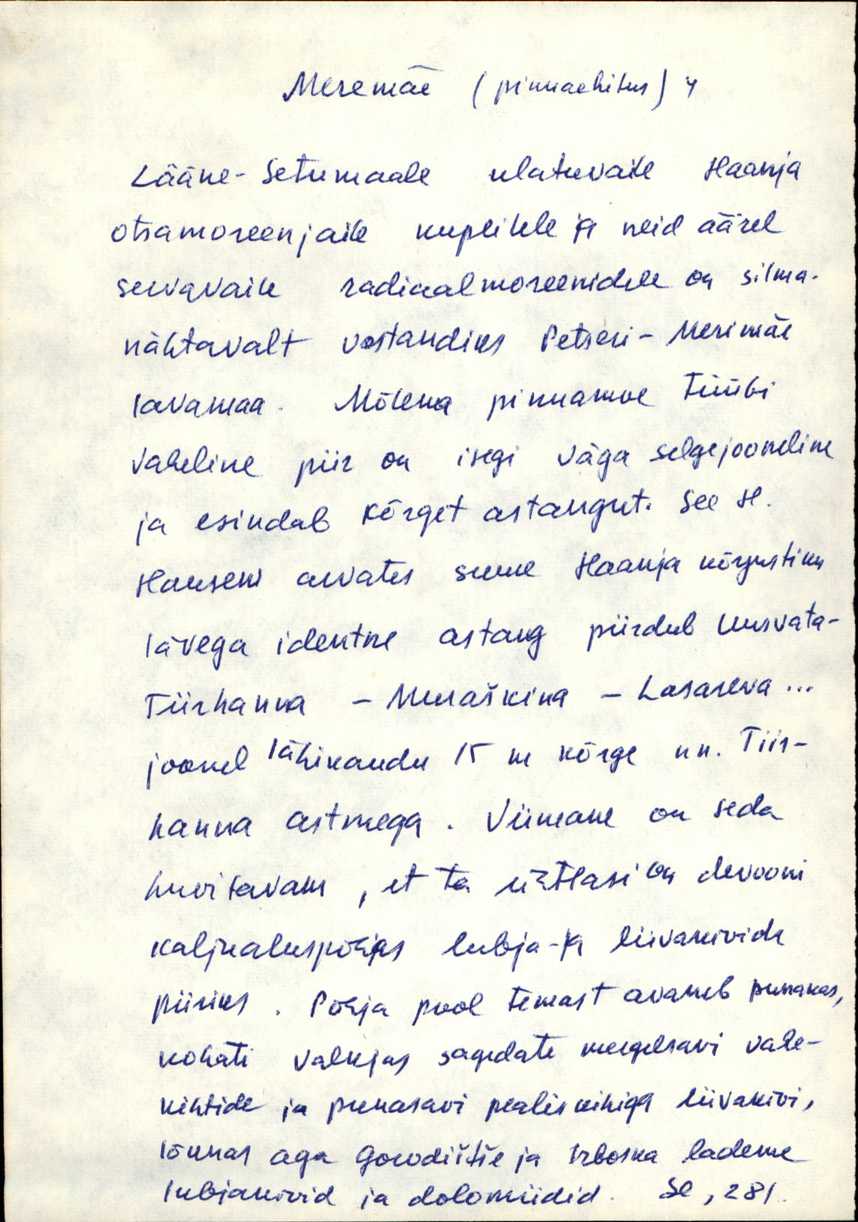 Meremäe (pinnaehitus) 4
Lääne-Setumaale ulatuvaile Haanja
otsamoreenjaile kuplitele ja neid äärel
saatvaile radiaalmoreenidele on silma-
nähtavalt vastandiks Petseri-Merimäe
lavamaa. Mõlema pinnamoe tüübi
vaheline piir on isegi väga selgejooneline
ja esindab kõrget astangut. See H.
Hauseni arvates suure Haanja kõrgustiku
lävega identne astang piirdub Uusvata-
Tiirhanna - Muraškina - Lasareva ...
joonel lähikaudu 15 m kõrge nn. Tiir-
hanna astmega. Viimane on seda
huvitavam, et ta ühtlasi on devooni
kaljualuspõhjas lubja- ja liivakivide
piiriks. Põhja pool temast avaneb punakas,
kohati valkjas sagedate mergelsavi vahe-
kihtide ja punasavi pealiskihiga liivakivi,
lõunas aga Gorodištše ja Irboska lademe
lubjakivid ja dolomiidid. Se, 281.